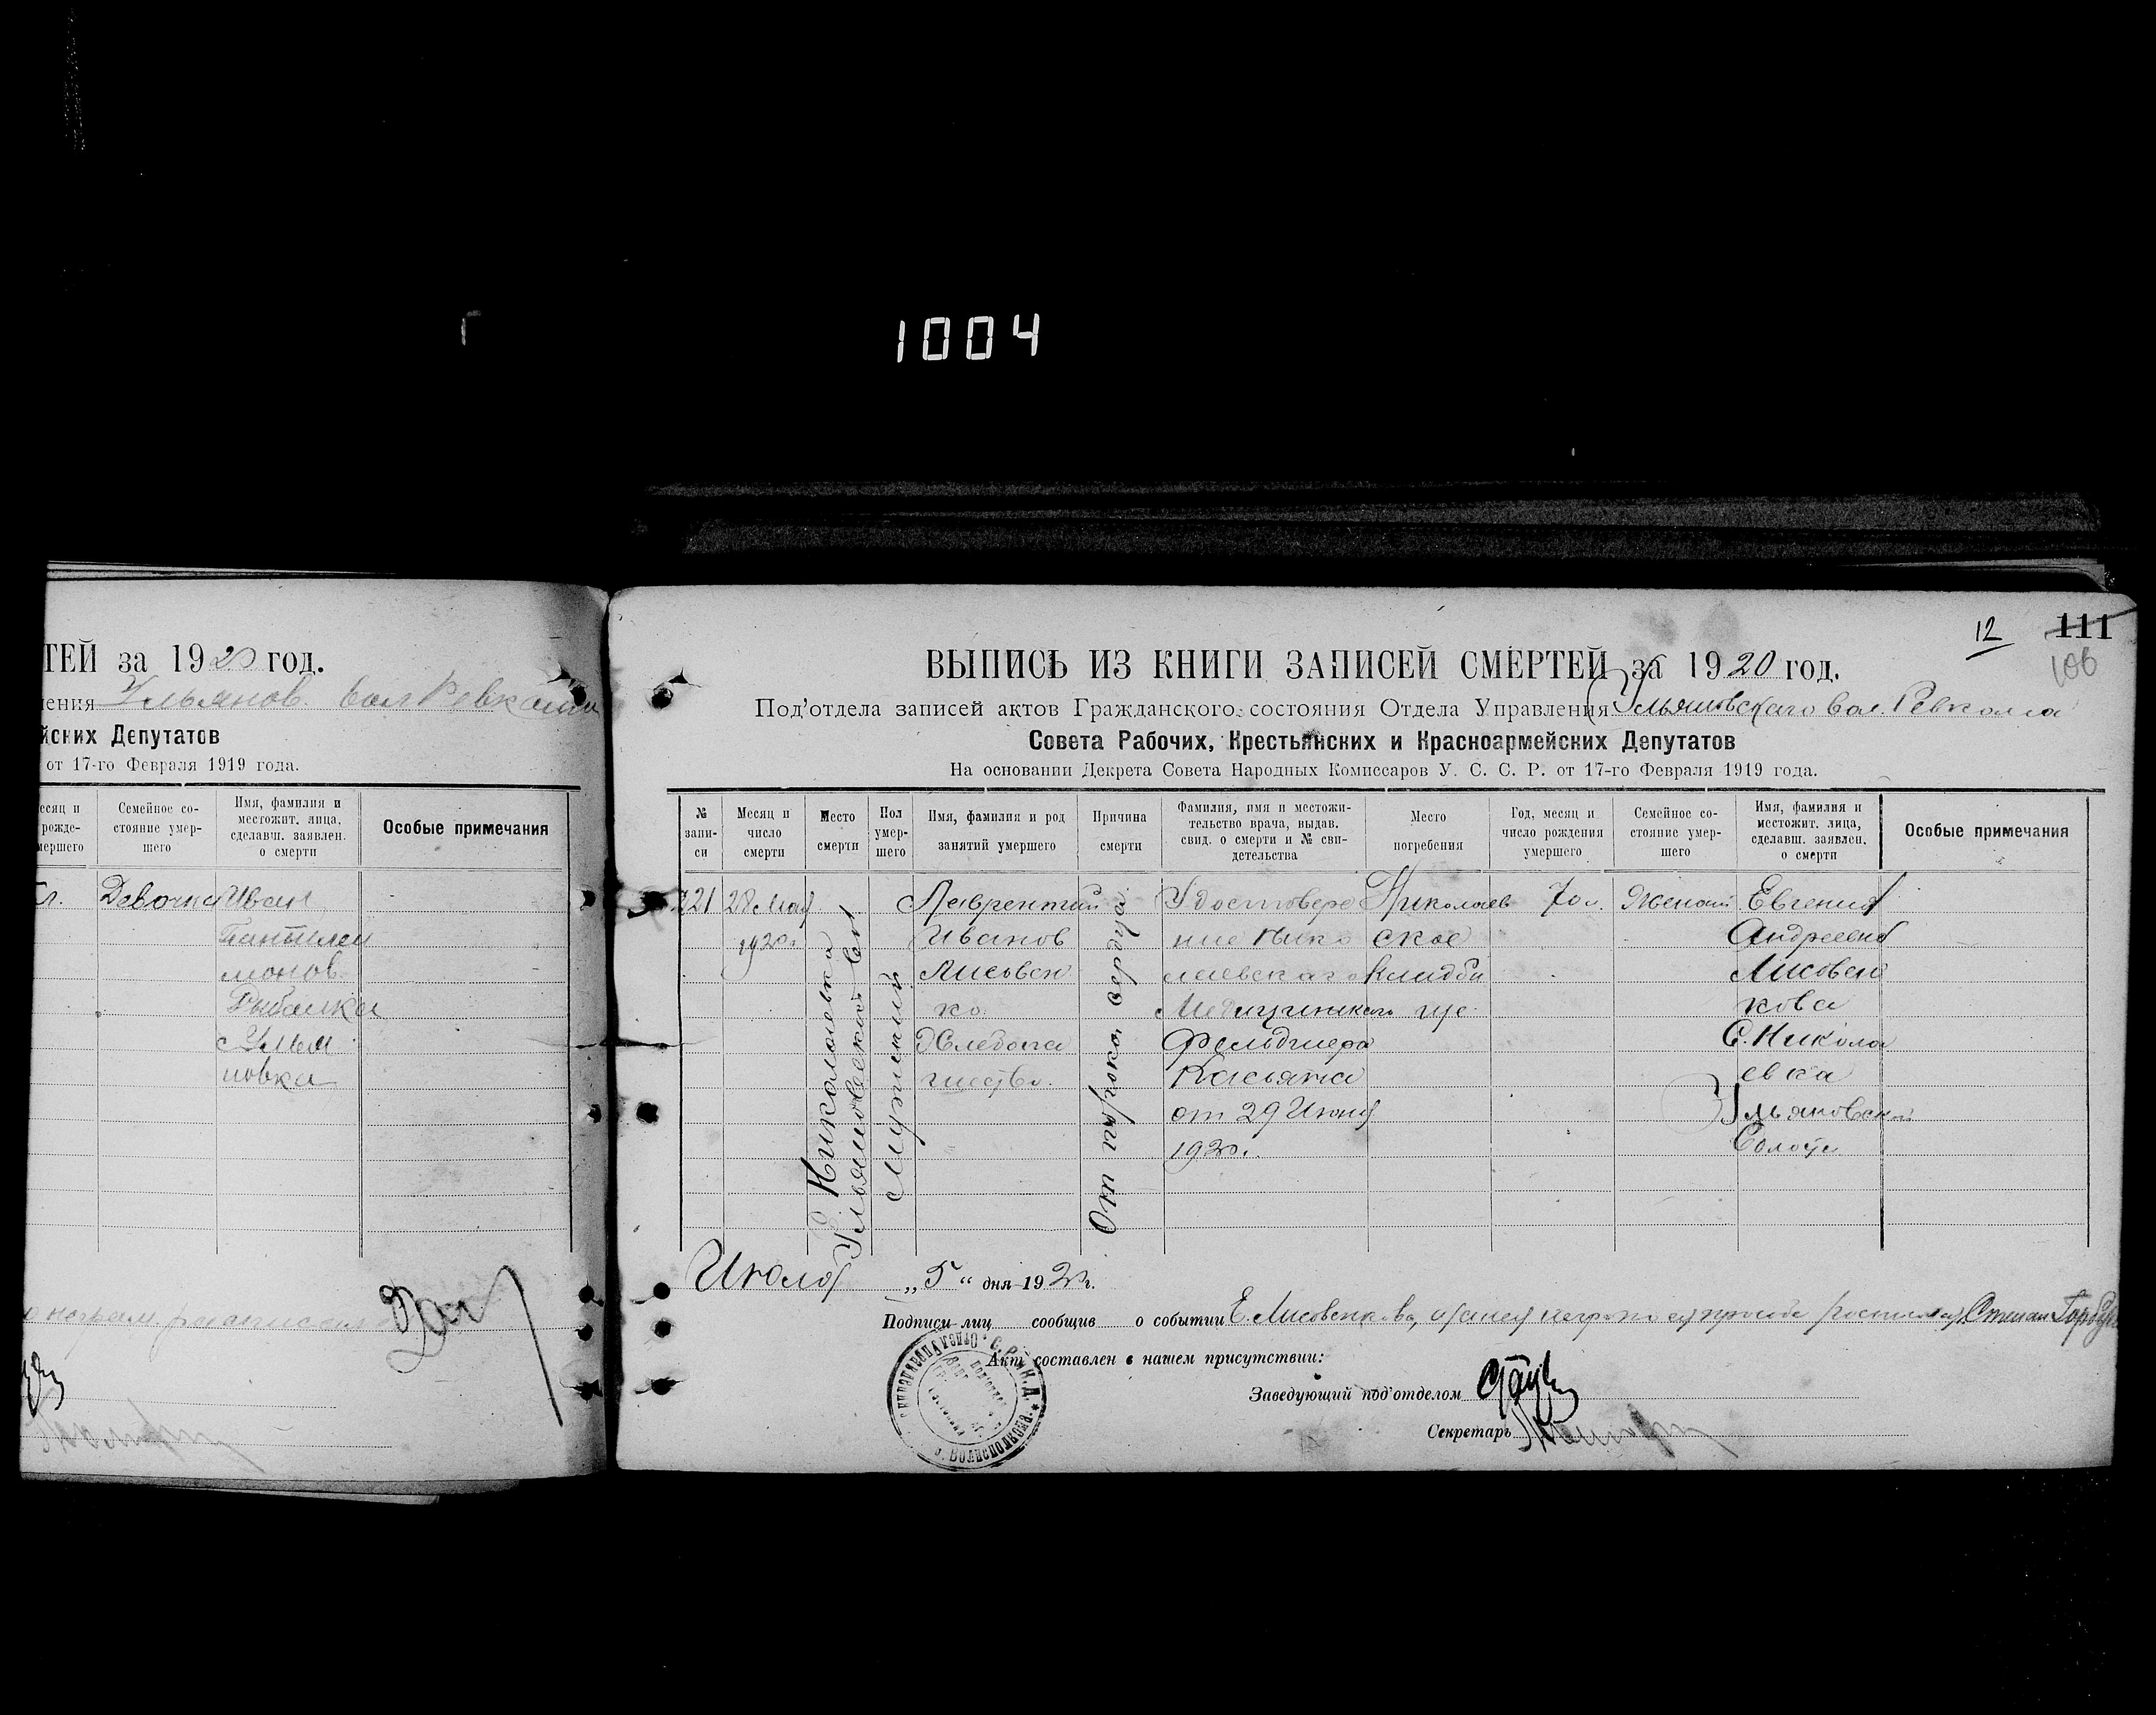 1004
ТЕЙ за 1920 год.
ения Ульянов. вол Ревкома
йских Депутатов
от 17-го Февраля 1919 года.
есяц и
рожде-
мершего
Семейное со-
стояние умер-
шего
Имя, фамилия и
местожит. лица,
сделавш. заявлен.
о смерти
Особые примечания
г.
Девочка
Иван
Пантелей
монов
Рыбалка
с Улья
новка
12
111
106
ВЫПИСЬ ИЗ КНИГИ ЗАПИСЕЙ СМЕРТЕЙ за 1920 год.
Под’отдела записей актов Гражданского состояния Отдела Управления Ульяновскаго вол. Ревкома
Совета Рабочих, Крестьянских и Красноармейских Депутатов
На основании Декрета Совета Народных Комиссаров У. С. С. Р. от 17-го Февраля 1919 года.
№
запи-
си
Месяц и
число
смерти
Место
смерти
Пол
умер-
шего
Имя, фамилия и род
занятий умершего
Причина
смерти
Фамилия, имя и местожи-
тельство врача, выдав.
свид. о смерти и № сви-
детельства
Место
погребения
Год, месяц и
число рождения
умершего
Семейное со-
стояние умер-
шего
Имя, фамилия и
местожит. лица,
сделавш. заявлен.
о смерти
Особые примечания
221
28 Мая
1920г.
С. Николаевка
Ульяновской вол
Мужский
Лаврентий
Иванов
Лисовен
ко
Хлебопа
шество.
От порока сердца
Удостовере
ние Нико
лаевскаго
Медицинскаго
Фельдшера
Касьяна
от 29 Июня
1920г.
Николаев
ское
Кладби
ще
70 л.
Женат
Евгения
Андреевна
Лисовен
кова
С. Никола
евка
Ульяновской
Волости
Июля „5“ дня 1920г.
Подписи лиц сообщив о событии Е. Лисовенкова, а за нея неграмотну по просьбе росписался Степан
Акт составлен в нашем присутствии:
Заведующий под’отделом
Секретарь